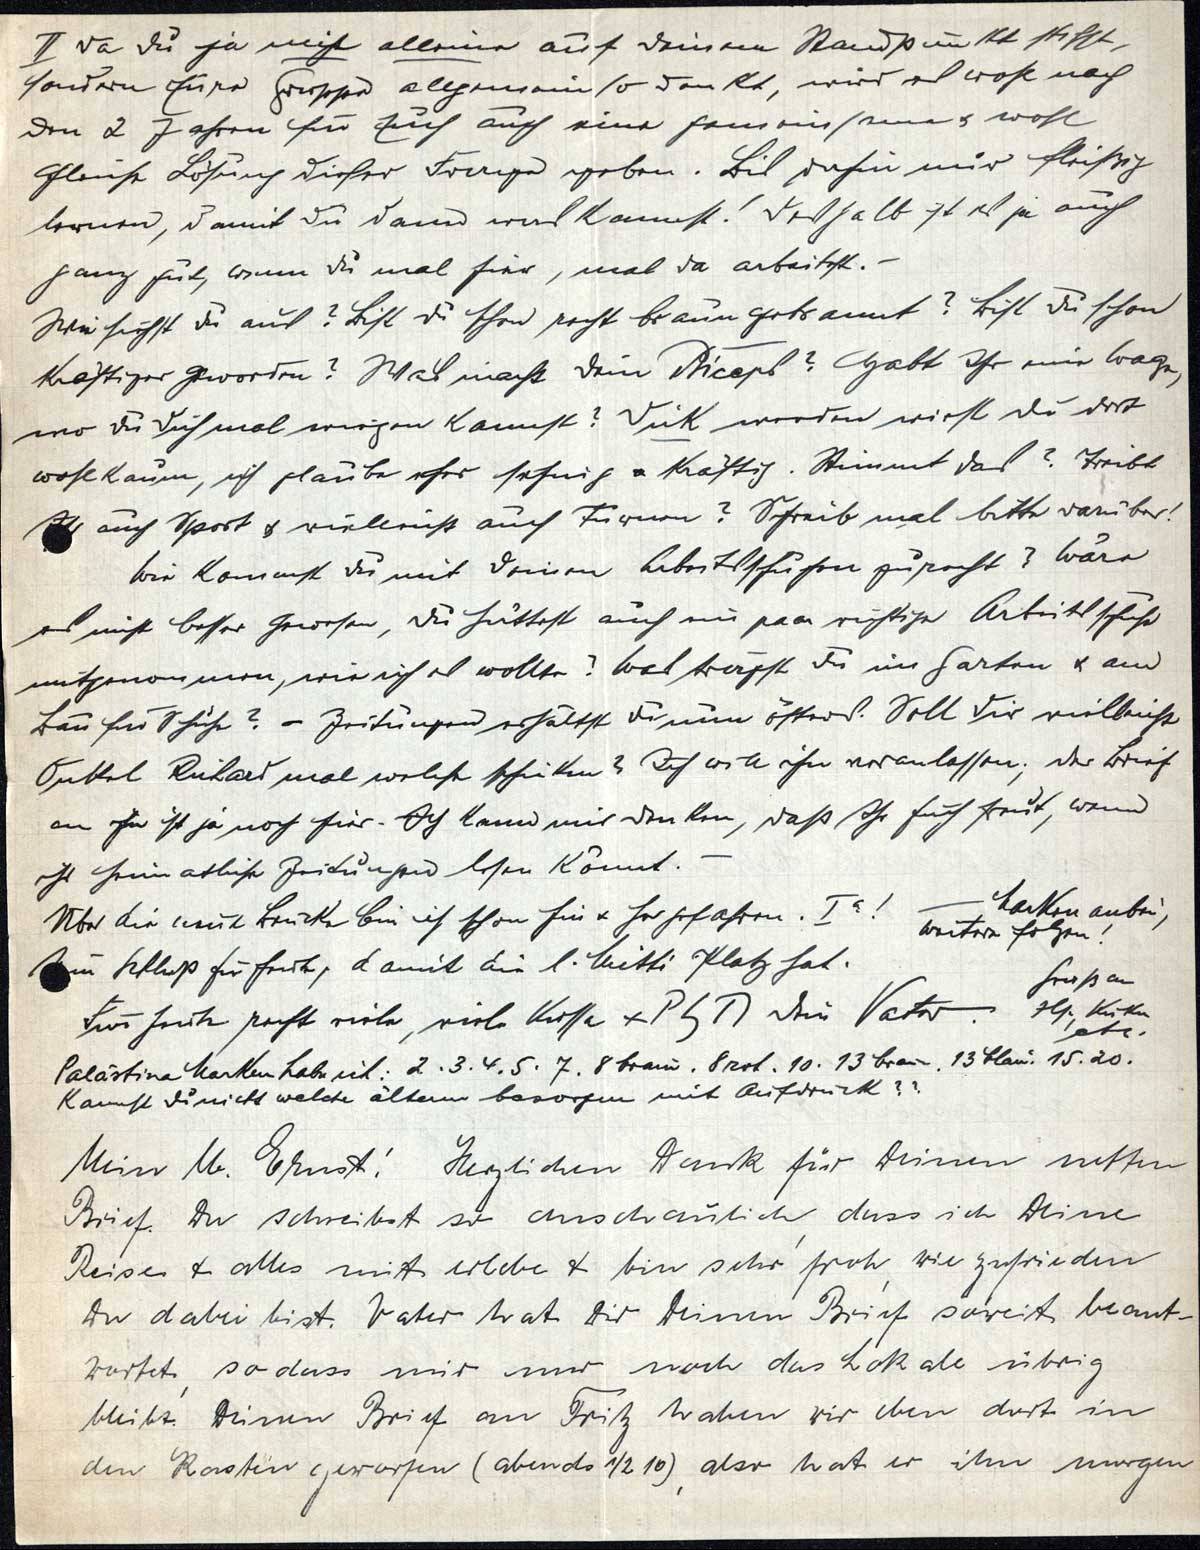 II da Du ja nicht alleine auf Deinem Standpunkt stehst,
sondern Eure Gruppe allgemein so denkt, wird es wohl nach
den 2 Jahren für Euch auch eine gemeinsame & wohl
gleiche Lösung dieser Frage geben. Bis dahin nur fleißig
lernen, damit Du dann was kannst! Deshalb ist es ja auch
ganz gut, wenn Du mal hier, mal da arbeitest. –
Wie siehst Du aus? Bist Du schon recht braun gebrannt? Bist Du schon
kräftiger geworden? Was macht Dein Biceps? Habt Ihr eine Wage,
wo Du Dich mal wiegen kannst? Dick werden wirst Du dort
wohl kaum, ich glaube eher sehnig & kräftig. Stimmt das? Treibt
Ihr auch Sport & vielleicht auch Turnen? Schreib mal bitte darüber!
Wie kommst Du mit Deinen Arbeitsschuhen zurecht? Wäre
es nicht besser gewesen, Du hättest auch ein paar richtige Arbeitsschuhe
mitgenommen, wie ich es wollte? Was trägst Du im Garten & am
Bau für Schuhe? – Zeitungen erhältst Du nun öfters. Soll Dir vielleicht
Onkel Richard mal welche schicken? Ich will ihn veranlassen; der Brief
an ihn ist ja noch hier. Ich kann mir denken, daß Ihr Euch freut, wenn
Ihr heimatliche Zeitungen lesen könnt. –
Über die neue Brücke bin ich schon hin & hergefahren. Ia! — Marken anbei,
weitere folgen!
Nun Schluß für heute, damit die l. Mutti Platz hat.
Für heute recht viele, viele Küsse & Dein Vater.
Gruß an
Kücken
etc.
Palästina Marken habe ich: 2. 3. 4. 5. 7. 8 braun. 8 rot. 10. 13 braun. 13 blau. 15. 20.
Kannst Du nicht welche ältere besorgen mit Aufdruck??
Mein l. Ernst! Herzlichen Dank für Deinen netten
Brief. Du schreibst so anschaulich, dass ich Deine
Reise & alles mit erlebe & bin sehr froh, wie zufrieden
Du dabei bist. Vater hat Dir Deinen Brief soweit beant-
wortet, sodass mir nur noch das Lokale übrig
bleibt. Deinen Brief an Fritz haben wir eben dort in
den Kasten geworfen (abends 1/2 10), also hat er ihn morgen